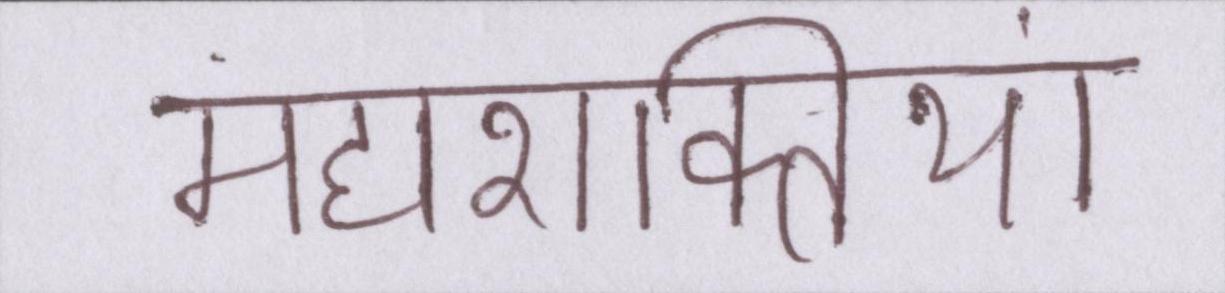 महाशक्तियां